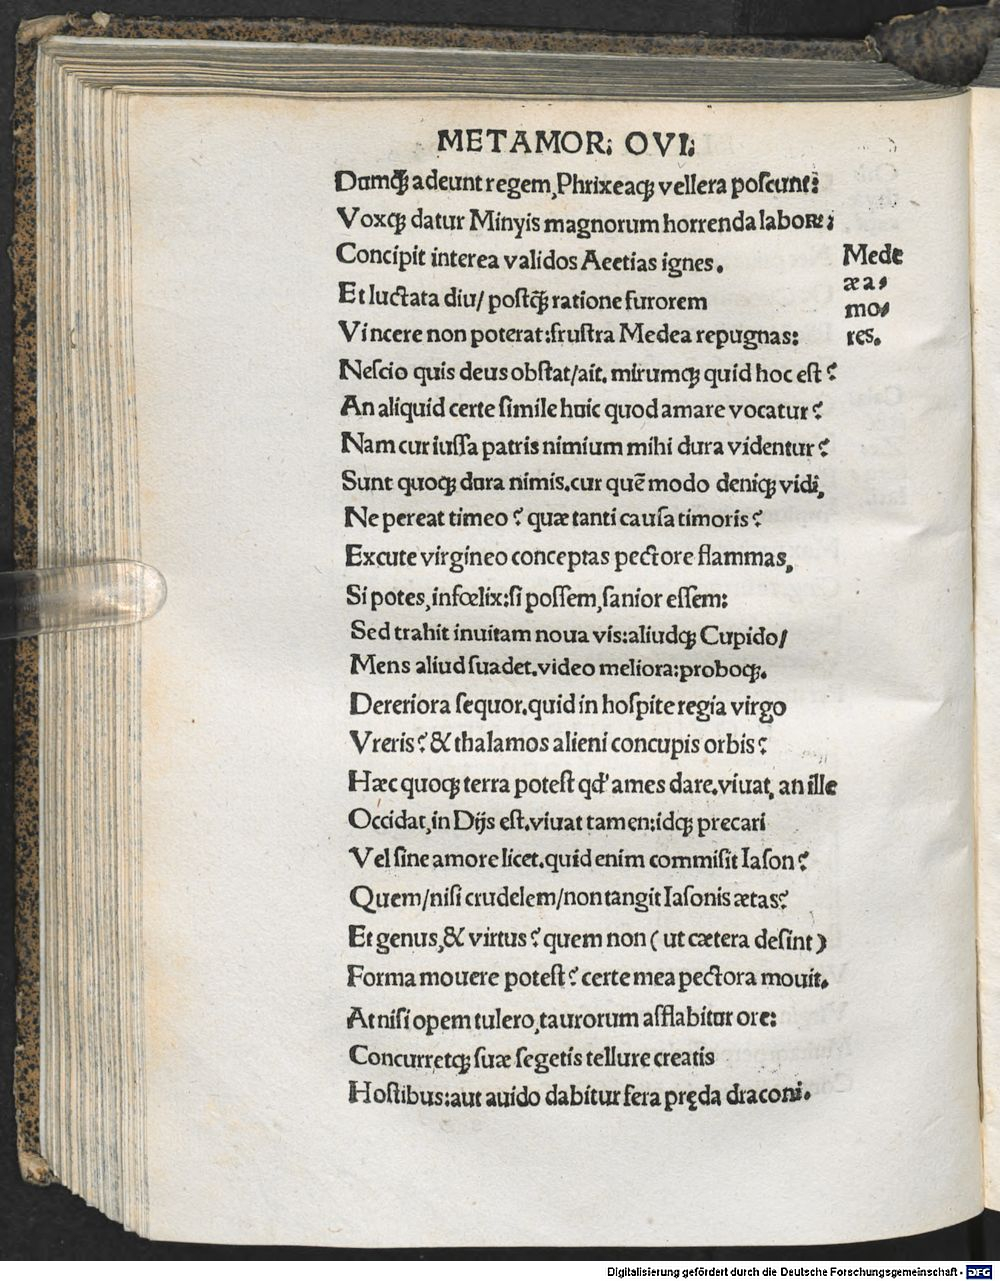 METAMOR: OVI:
Dumq̃ adeunt regem, Phrixeaqꝫ vellera poſcunt:
Voxqꝫ datur Minyis magnorum horrenda laboꝝ:
Concipit interea validos Aeetias ignes.
Et luctata diu/ poſtq̃ ratione furorem
Vincere non poterat:fruſtra Medea repugnas:
Neſcio quis deus obſtat/ait. mirumqꝫ quid hoc eſt?
An aliquid certe ſimile huic quod amare vocatur?
Nam cur iuſſa patris nimium mihi dura videntur?
Sunt quoqꝫ dura nimis.cur quē modo deniqꝫ vidi,
Ne pereat timeo? quæ tanti cauſa timoris?
Excute virgineo conceptas pectore flammas,
Si potes, infœlix:ſi poſſem, ſanior eſſem:
Sed trahit inuitam noua vis:aliudqꝫ Cupido/
Mens aliud ſuadet.video meliora:proboqꝫ.
Dereriora ſequor.quid in hoſpite regia virgo
Vreris? & thalamos alieni concupis orbis?
Hæc quoqꝫ terra poteſt qd' ames dare.viuat, an ille
Occidat, in Dijs eſt.viuat tamen:idqꝫ precari
Vel ſine amore licet.quid enim commiſit Iaſon?
Quem/niſi crudelem/non tangit Iaſonis ætas?
Et genus, & virtus? quem non ( ut cætera deſint )
Forma mouere poteſt? certe mea pectora mouit.
At niſi opem tulero, taurorum afflabitur ore:
Concurretqꝫ ſuæ ſegetis tellure creatis
Hoſtibus:aut auido dabitur fera pręda draconi.
Mede
æ a⸗
mo⸗
res.
Digitalisierung gefördert durch die Deutsche Forschungsgemeinschaft - DFG